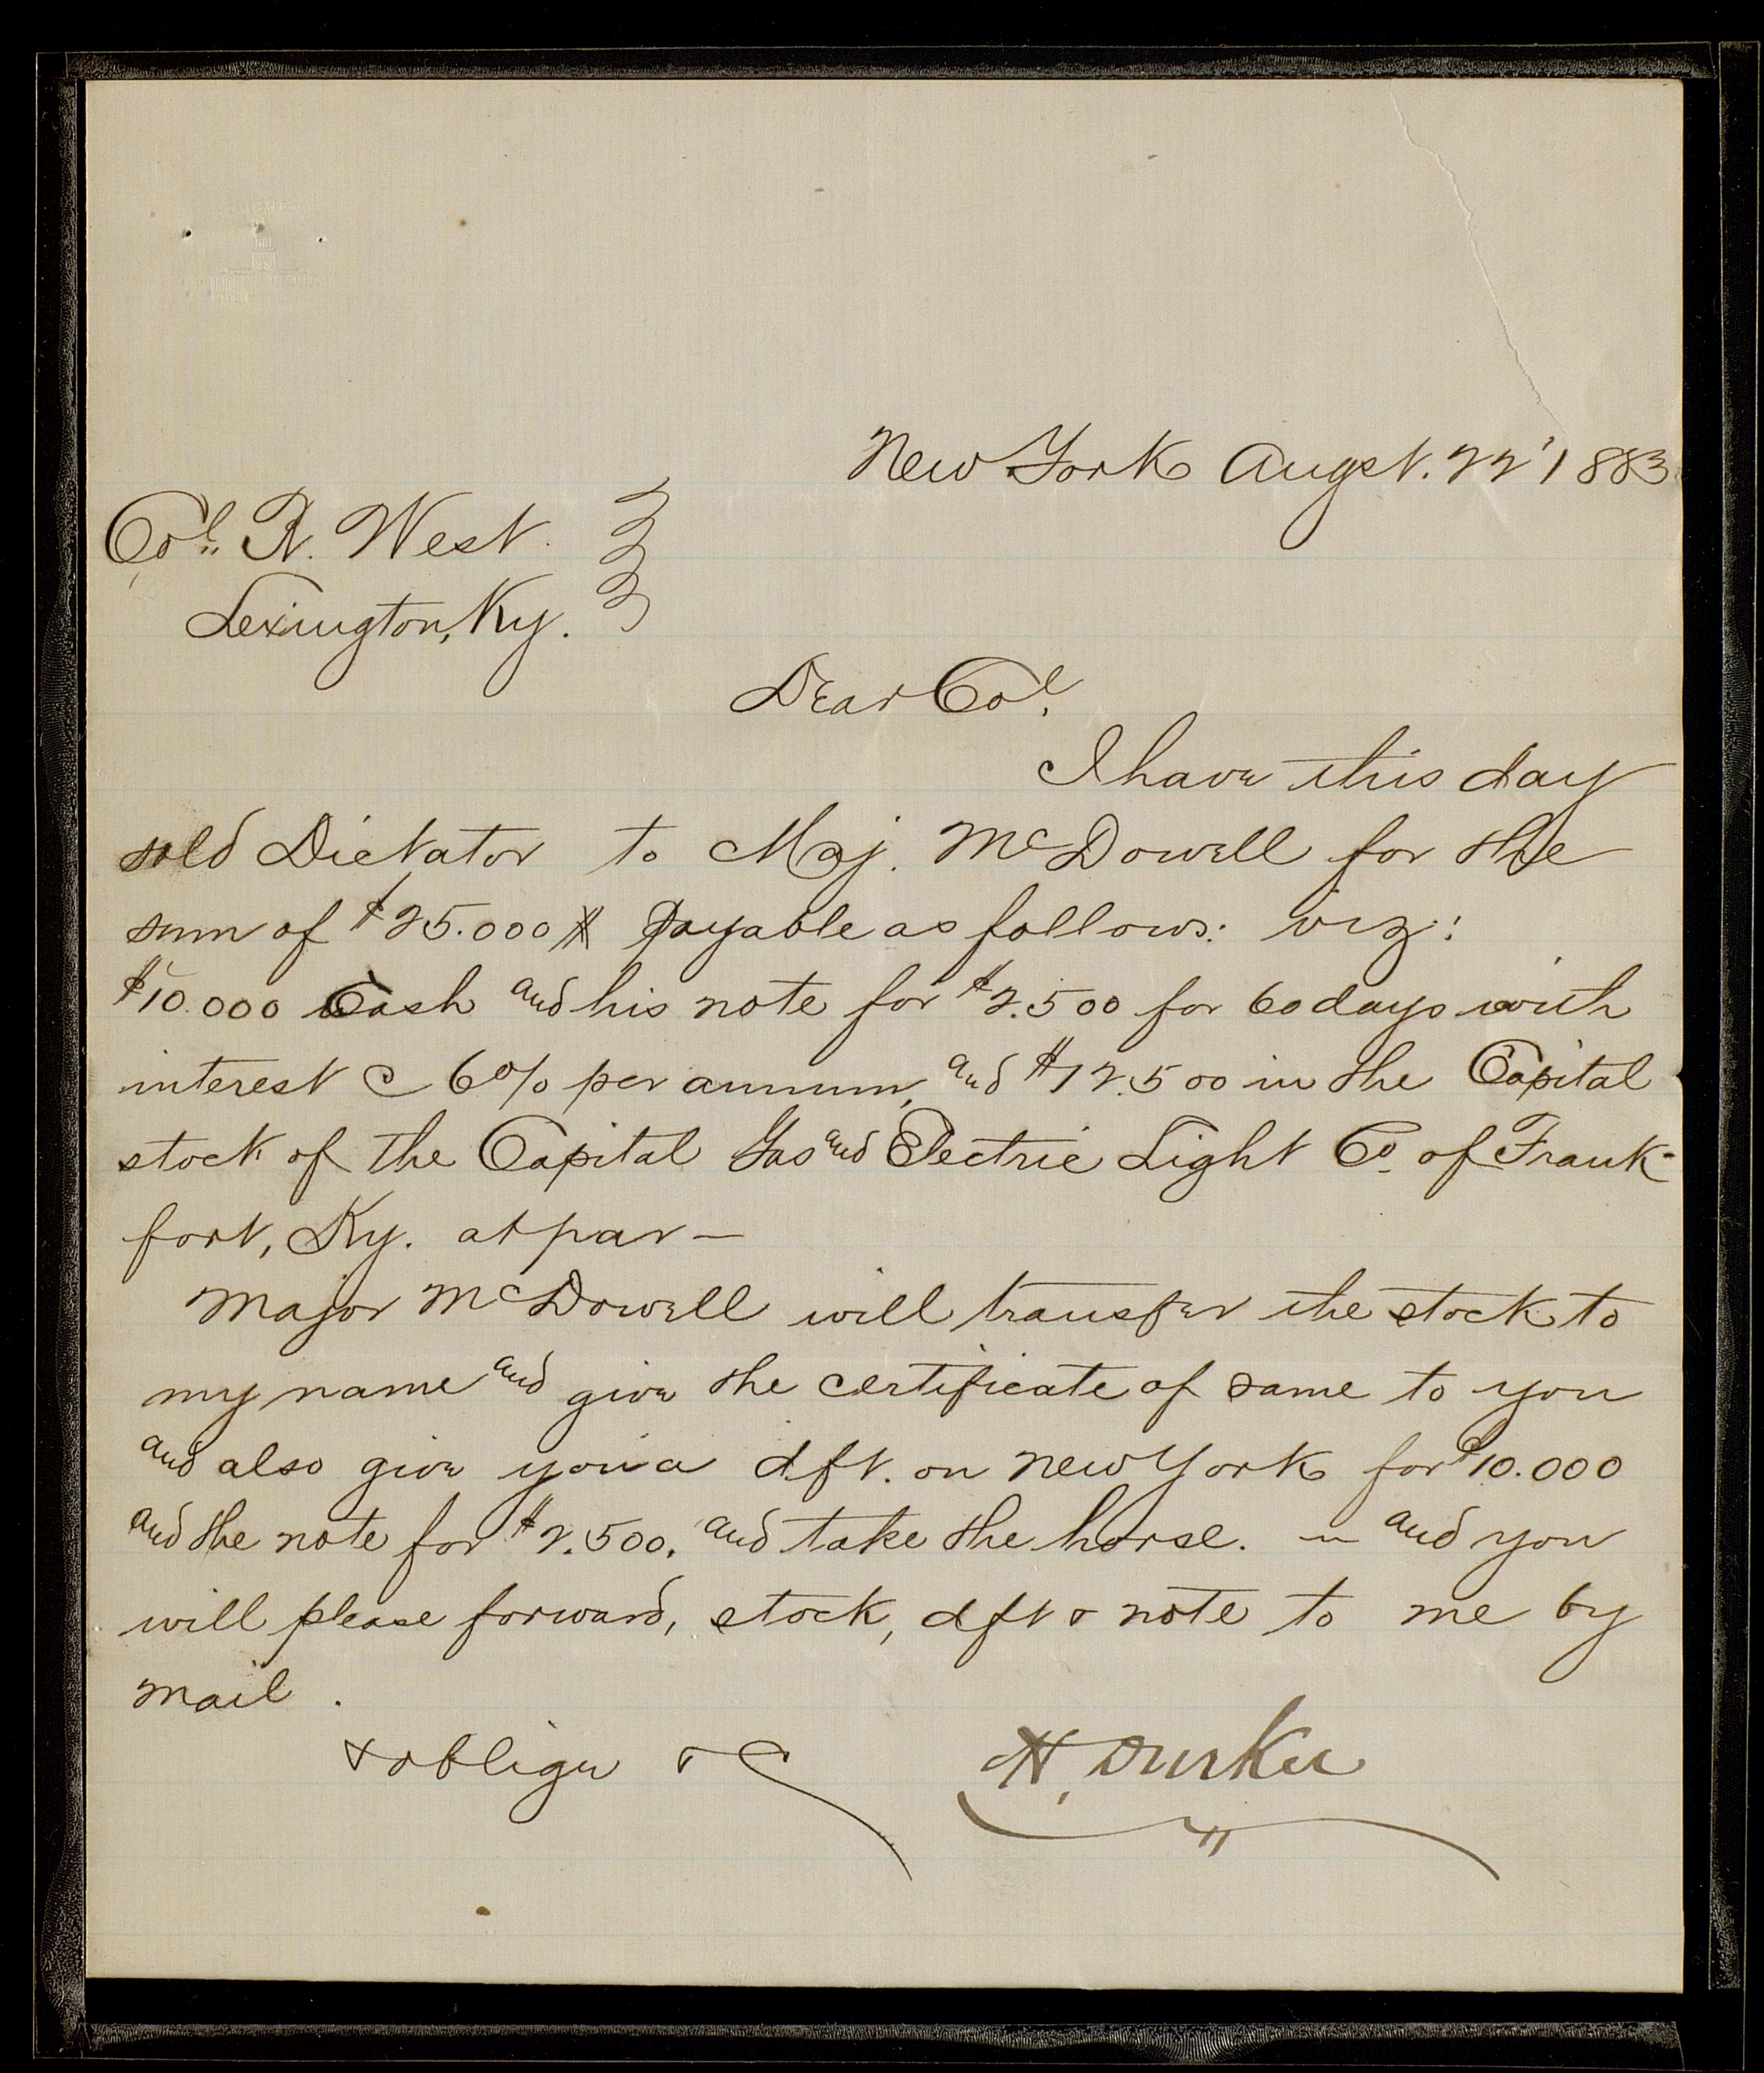 New York Augst. 22' 1883
Col. R. West.
Lexington, Ky.
Dear Col.
I have this day
sold Dictator to Maj. McDowell for the
sum of $25.000 payable as follows: viz:
$10.000 Cash and his note for $2.500 for 60 days with
interest @ 6% per annum, and $12.500 in the Capital
stock of the Capital Gas and Electric Light Co. of Frank-
fort, Ky. at par —
Major McDowell will transfer the stock to
my name and give the certificate of same to you
and also give you a dft. on New York for $10.000
and the note for $2.500. and take the horse. — and you
will please forward, stock, dft & note to me by
mail.
& oblige &c
H. Durkee